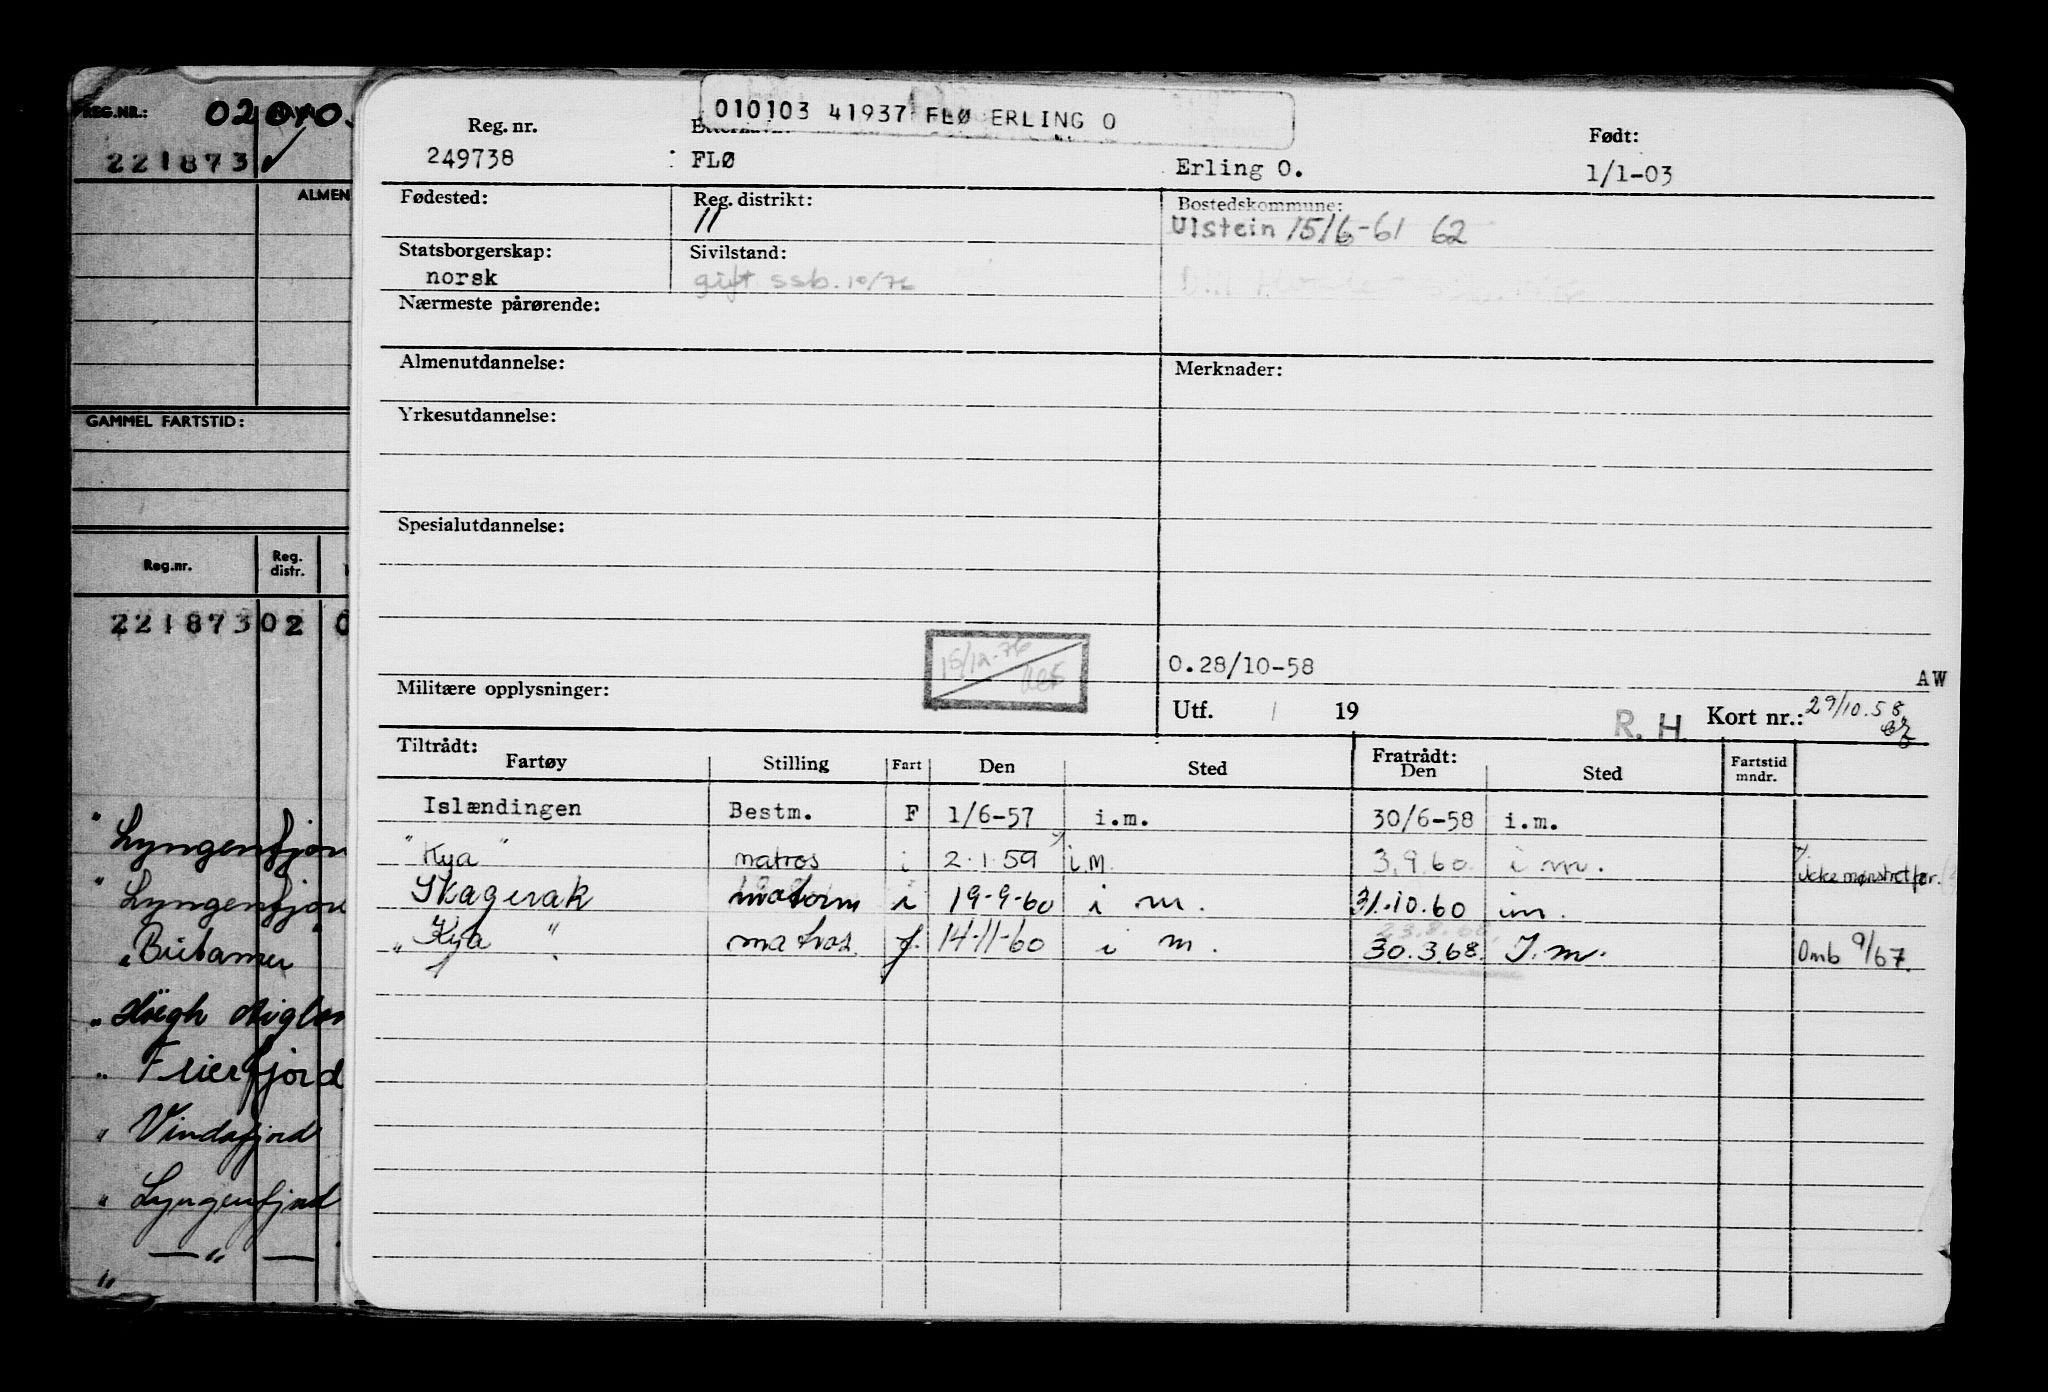 REG.NR.: 02
221873 ✓
ALMEN
GAMMEL FARTSTID:
Reg.nr. Reg. distr.
221873 02 0
" Lyngenfjor
" Lyngenfjor
" Høegh
" Freierfjord
" Vindafjord
" Lyngenfjord
— " —
"
010103 41937 FLØ ERLING O
Reg. nr. Født:
249738 FLØ Erling O. 1/1-03
Fødested: Reg. distrikt: Bostedskommune:
11 Ulstein 15/6-61 62
Statsborgerskap: Sivilstand:
norsk gift ssb. 10/76
Nærmeste pårørende:
Almenutdannelse: Merknader:
Yrkesutdannelse:
Spesialutdannelse:
15/12-76
O.28/10-58
AW
Militære opplysninger:
Utf. / 19 R. H Kort nr.: 29/10.58
Tiltrådt: Fratrådt:
Fartøy Stilling Fart Den Sted Den Sted Fartstid mndr.
Islændingen Bestm. F 1/6-57 i.m. 30/6-58 i.m.
" Kya " matros i 2.1.59 i.M. 3.9.60 i m. ikke mønstret før.
Skagerak i 19-9-60 i m. 31.10.60 im.
23.8.68.
" Kya " matros. f. 14-11-60 i m. 30.3.68. I.m. Omb 9/67.